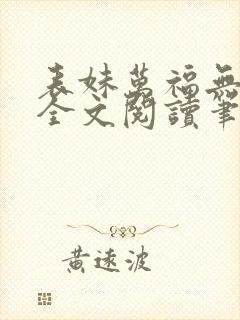 表妹萬福無
全文閱讀筆
黃遠波